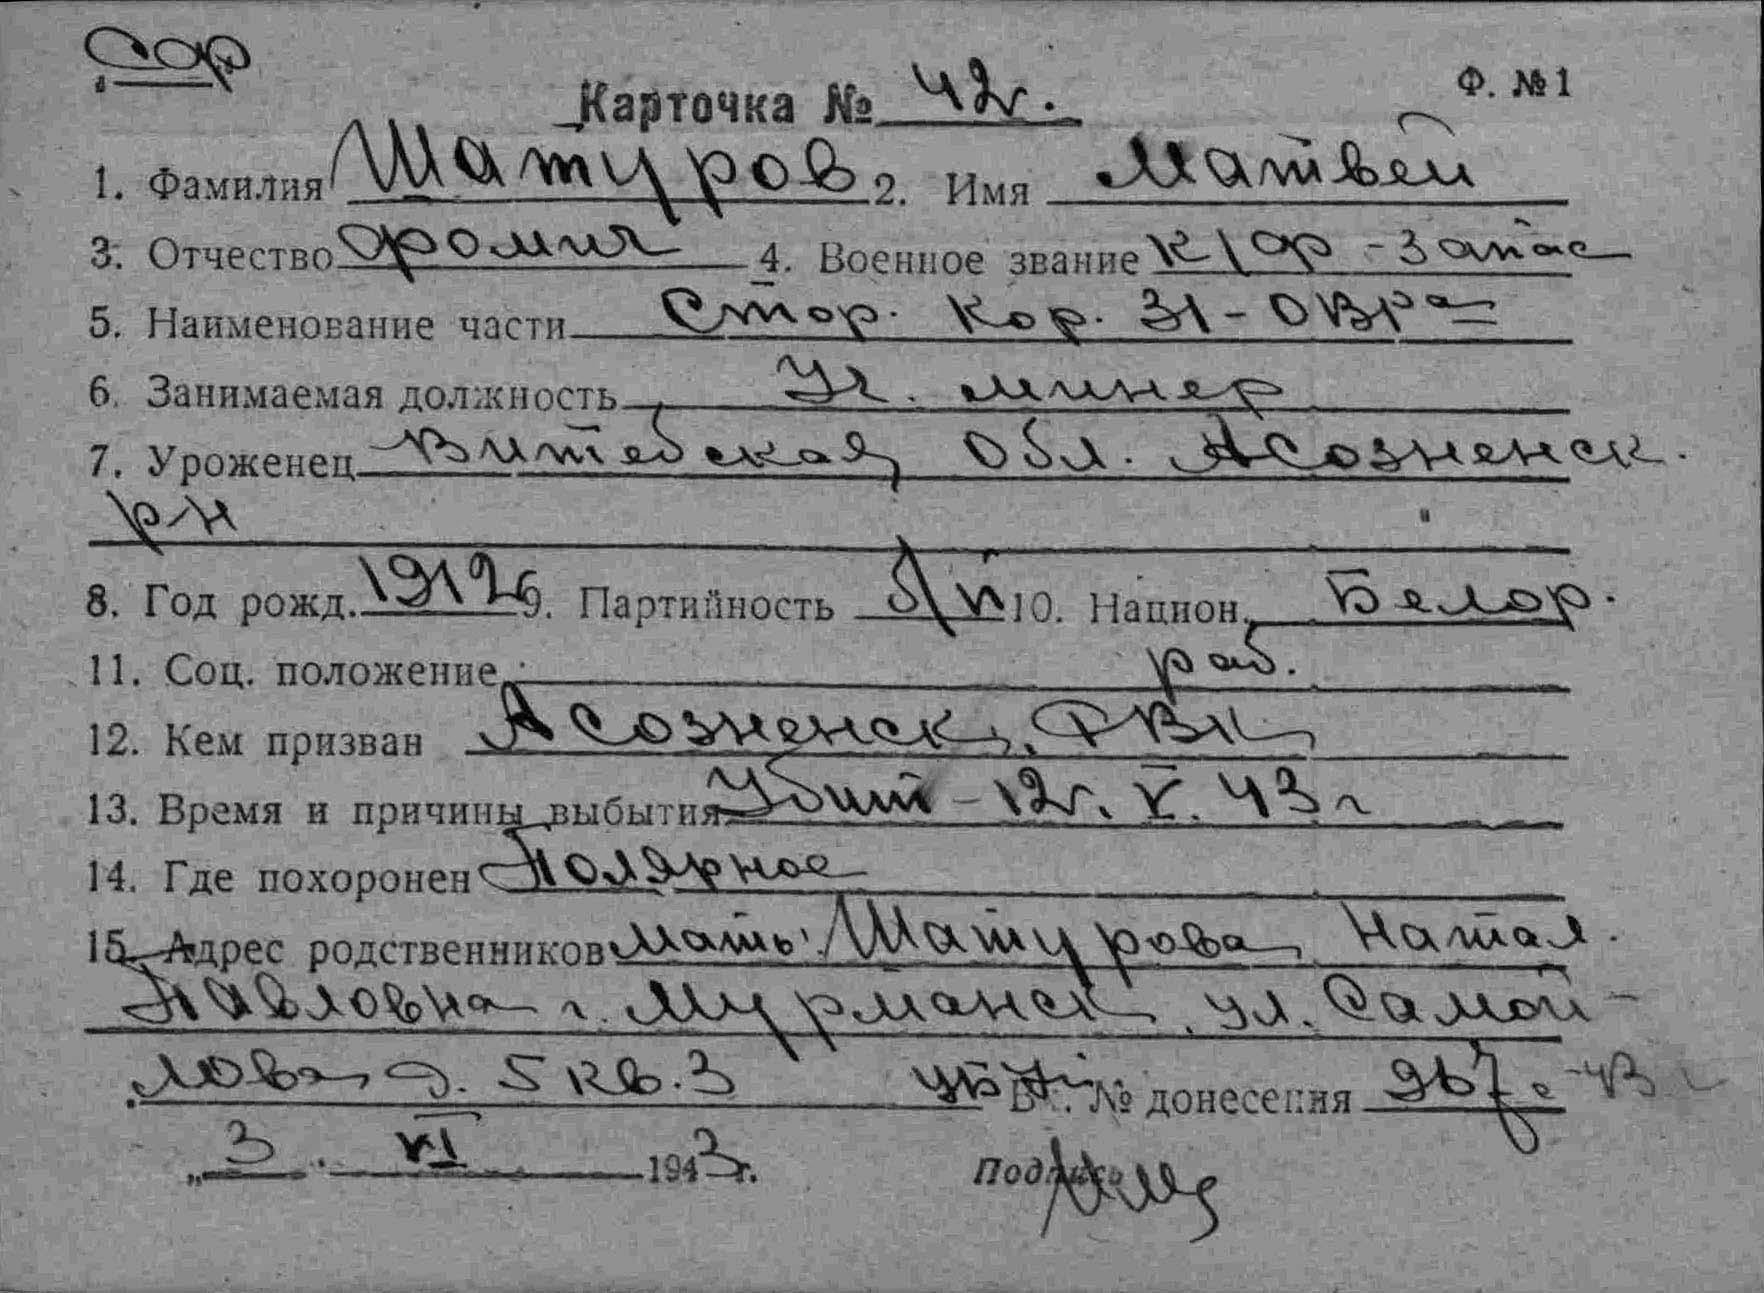 Карточка № 42г. Ф. № 1
1. Фамилия Шатуров 2. Имя Матвей
3. Отчество Фомич 4. Военное звание к/ф - запас
5. Наименование части Стор. Кор. 31 - ОВРа
6. Занимаемая должность Уч. минер
7. Уроженец Витебская обл. Асозненск.
р-н
8. Год рожд. 1912 9. Партийность б/п 10. Национ. Белор.
11. Соц. положение раб.
12. Кем призван Асозненск. РВК
13. Время и причины выбытия Убит - 12г. V. 43 г
14. Где похоронен Полярное
15. Адрес родственников Мать: Шатурова Натал.
Павловна г. Мурманск, ул. Самой-
лова д. 5 кв. 3 № донесения 43 г
„ 3 . VI 1943г. Подпись